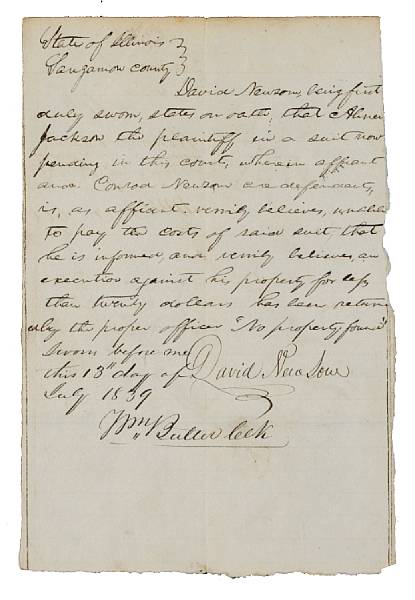 State of Illinois }
Sangamon county }
David Newsom, being first
duly sworn, states on oath, that Abner
Jackson the plaintiff in a suit now
pending in this court, wherein affiant
and Conrad Newsom are defendants,
is, as affiant verily believes, unable
to pay the costs of said suit, that
he is informed and verily believes, an
execution against his property for less
than twenty dollars has been return
by the proper officer "No property found"
Sworn before me
this 13th day of David New Som
July 1839
Wm Butler Clk